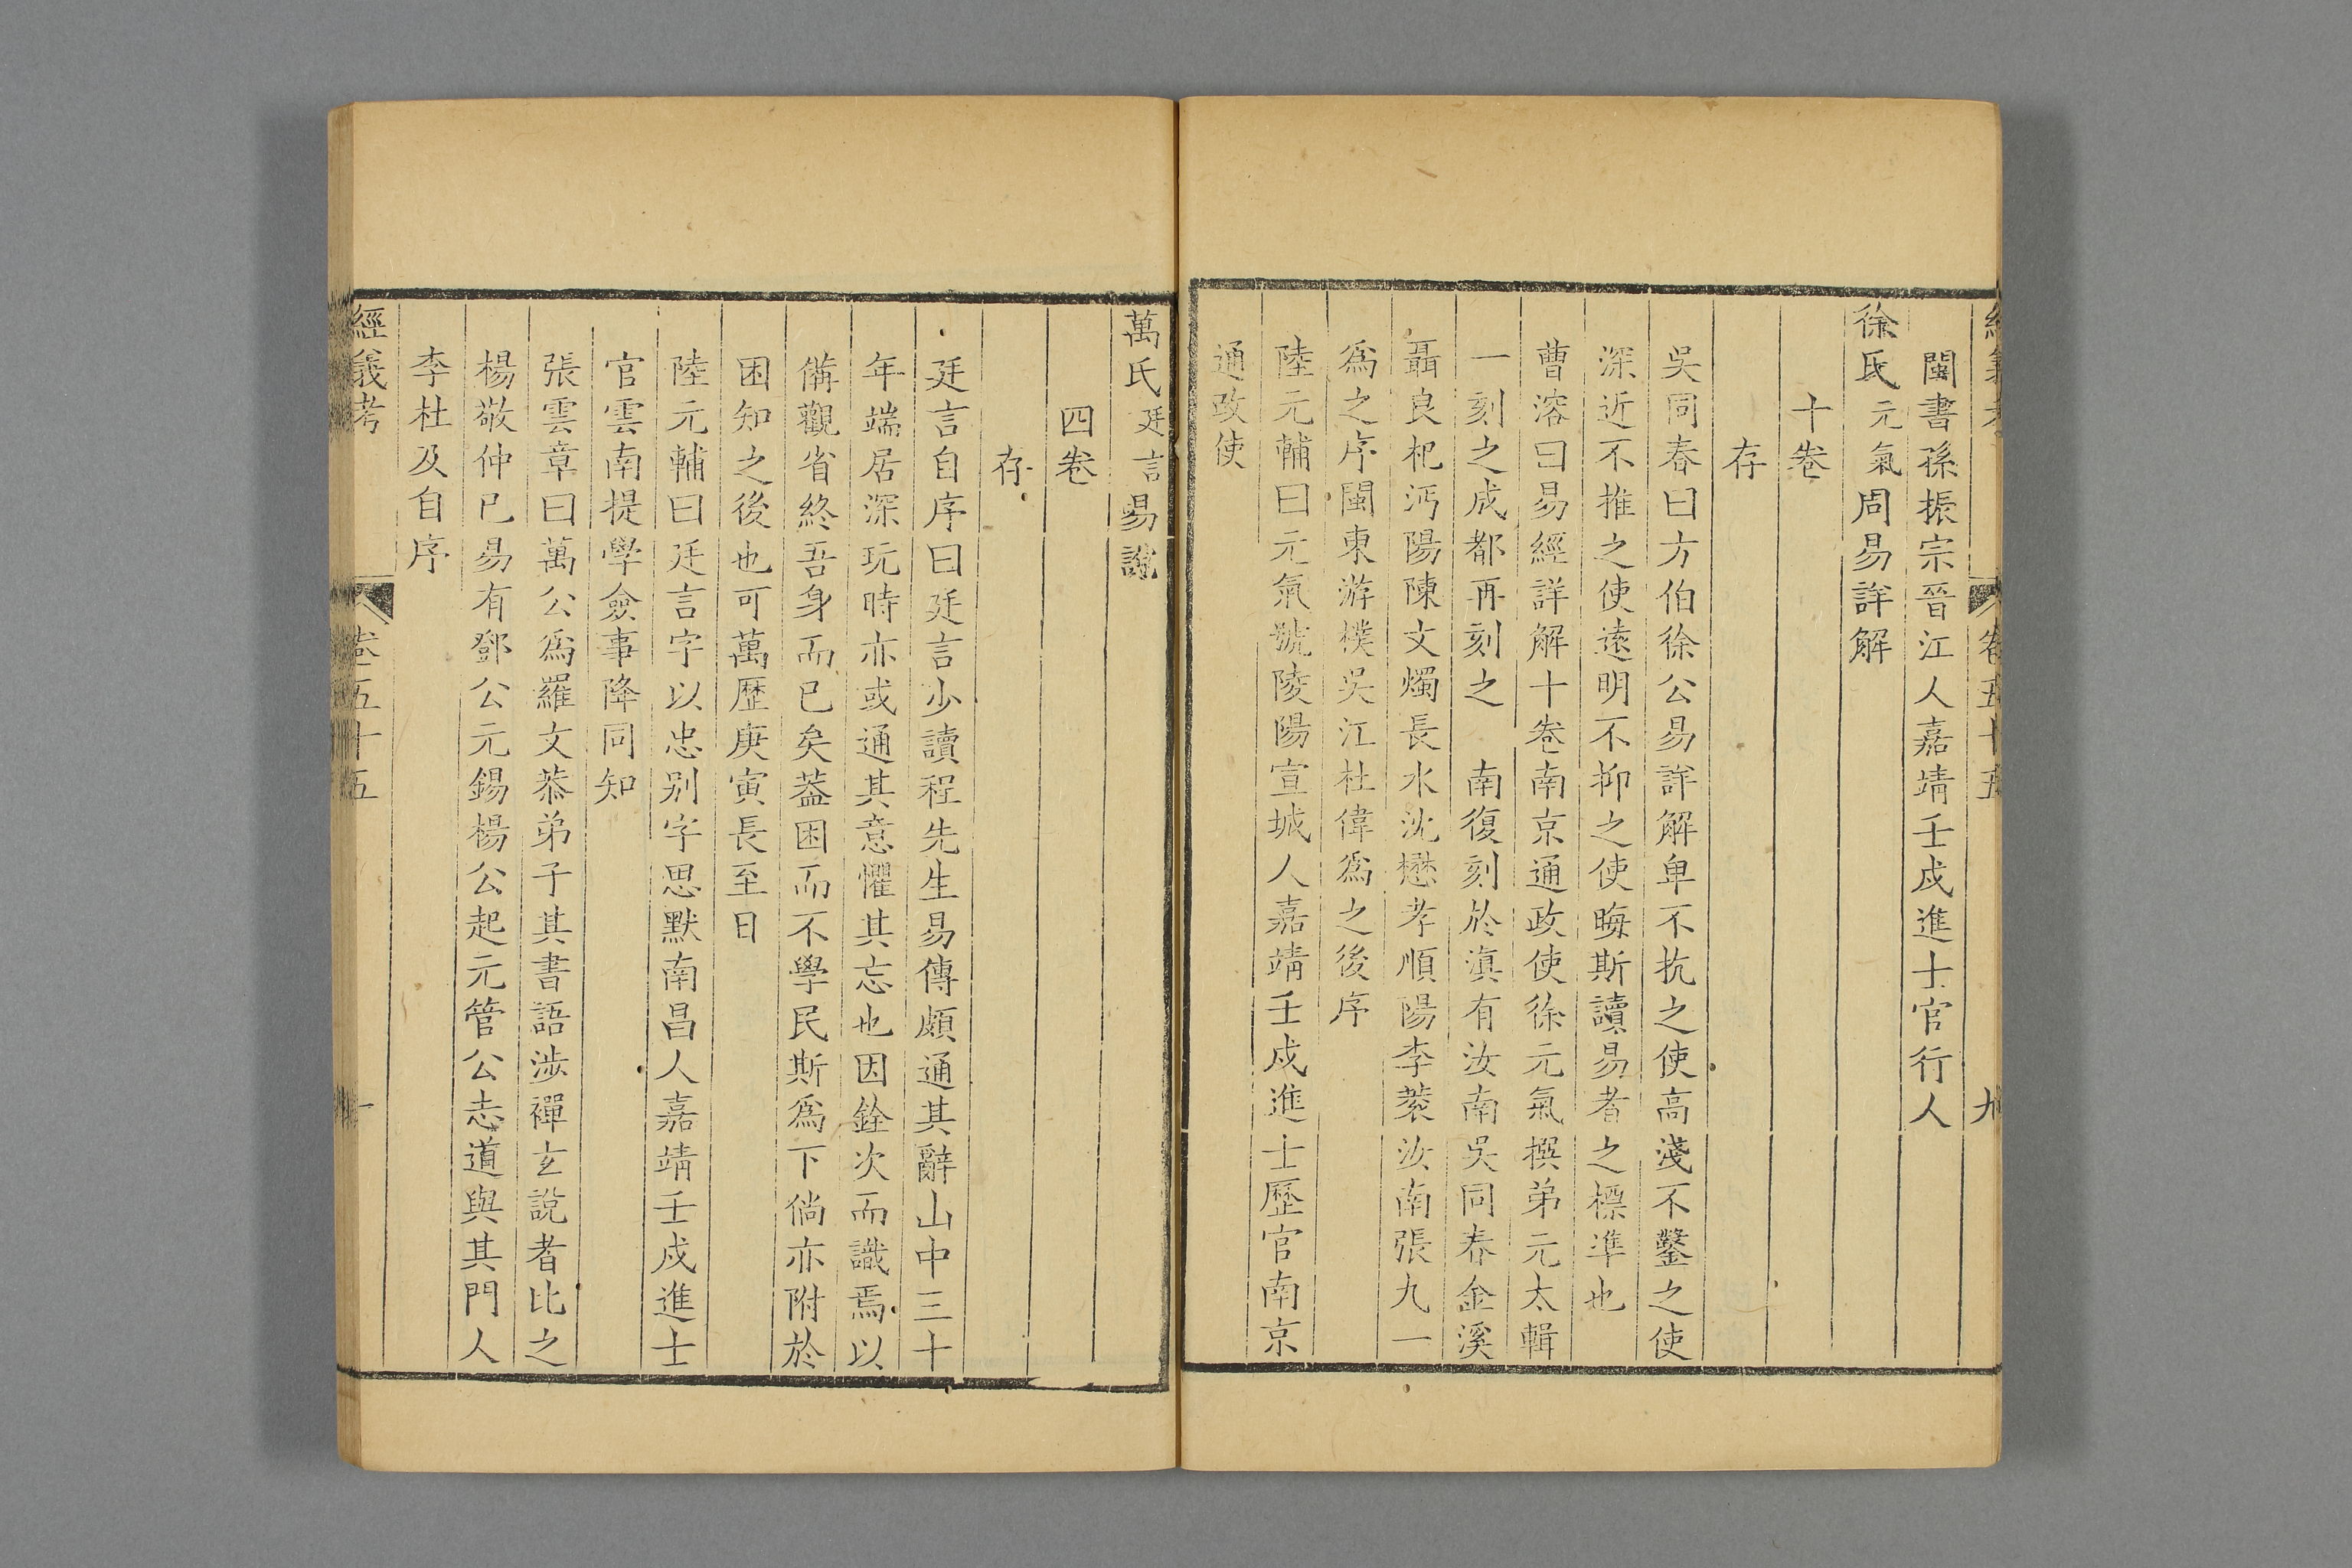 閩書孫振宗晉江人嘉靖壬戌進士官行人
徐氏元氣周易詳解
十卷
存
吳同春曰方伯徐公易詳解卑不抗之使高淺不鑿之使
深近不推之使遠明不抑之使晦斯讀易者之標準也
曹溶曰易經詳解十卷南京通政使徐元氣撰弟元太輯
一刻之成都再刻之 南復刻於滇有汝南吳同春金溪
聶良杞沔陽陳文燭長水沈懋孝順陽李蓘汝南張九一
爲之序閩東游樸吳江杜偉爲之後序
陸元輔曰元氣號陵陽宣城人嘉靖壬戌進士歷官南京
通政使
經義考 卷五十五 九
萬氏廷言易說
四卷
存
廷言自序曰廷言少讀程先生易傳頗通其辭山中三十
年端居深玩時亦或通其意懼其忘也因銓次而識焉以
備觀省終吾身而已矣葢困而不學民斯爲下倘亦附於
困知之後也可萬歷庚寅長至日
陸元輔曰廷言字以忠别字思默南昌人嘉靖壬戌進士
官雲南提學僉事降同知
張雲章曰萬公爲羅文恭弟子其書語涉禪玄說者比之
楊敬仲已易有鄧公元錫楊公起元管公志道與其門人
李杜及自序
經義考 卷五十五